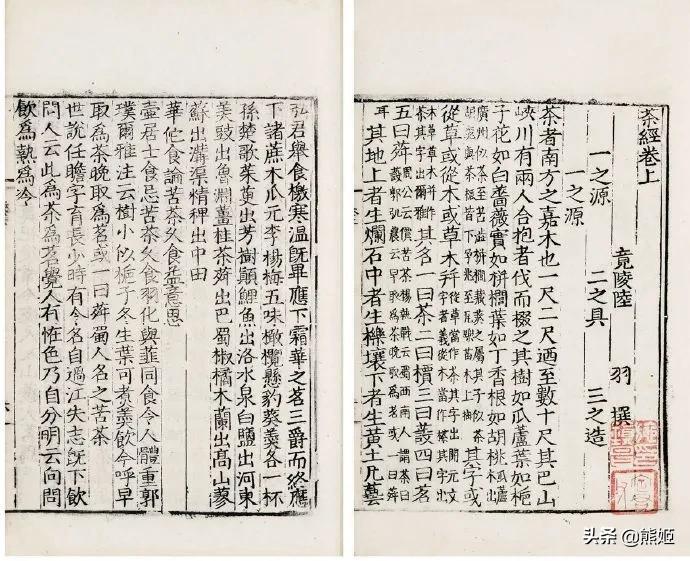 茶經卷上
竟陵陸 羽 撰
一之源 二之具 三之造
一之源
茶者南方之嘉木也一尺二尺迺至數十尺其巴山
峽川有兩人合抱者伐而掇之其樹如瓜蘆葉如梔
子花如白薔薇實如栟櫚葉如丁香根如胡桃瓜蘆木出
廣州似茶至苦澀栟櫚蒲葵之屬其子似茶胡桃與茶根皆下孕兆至瓦礫苗木上抽其字或
從草或從木或草木并從草當作茶其字出開元文字音義從木當作搽其字出
本草草木并作荼其字出爾雅其名一曰茶二曰檟三曰蔎四曰茗
五曰荈周公云檟苦茶揚執戟云蜀西南人謂茶曰蔎郭弘農云早取為茶晚取為茗或一曰荈
耳其地上者生爛石中者生櫟壤下者生黃土凡藝
弘君舉食檄寒溫既畢應下霜華之茗三爵而終應
下諸蔗木瓜元李楊梅五味橄欖懸豹葵羹各一杯
孫楚歌茱萸出芳樹顛鯉魚出洛水泉白鹽出河東
美豉出魯淵薑桂茶荈出巴蜀椒橘木蘭出高山蓼
蘇出溝渠精稗出中田
華佗食論苦茶久食益意思
壺居士食忌苦茶久食羽化與韭同食令人體重郭
璞爾雅注云樹小似梔子冬生葉可煮羹飲今呼早
取為茶晚取為茗或一曰荈蜀人名之苦茶
世說任瞻字育長少時有令名自過江失志既下飲
問人云此為茶為茗覺人有怪色乃自分明云向問
飲為熱為冷
头条 @熊姬